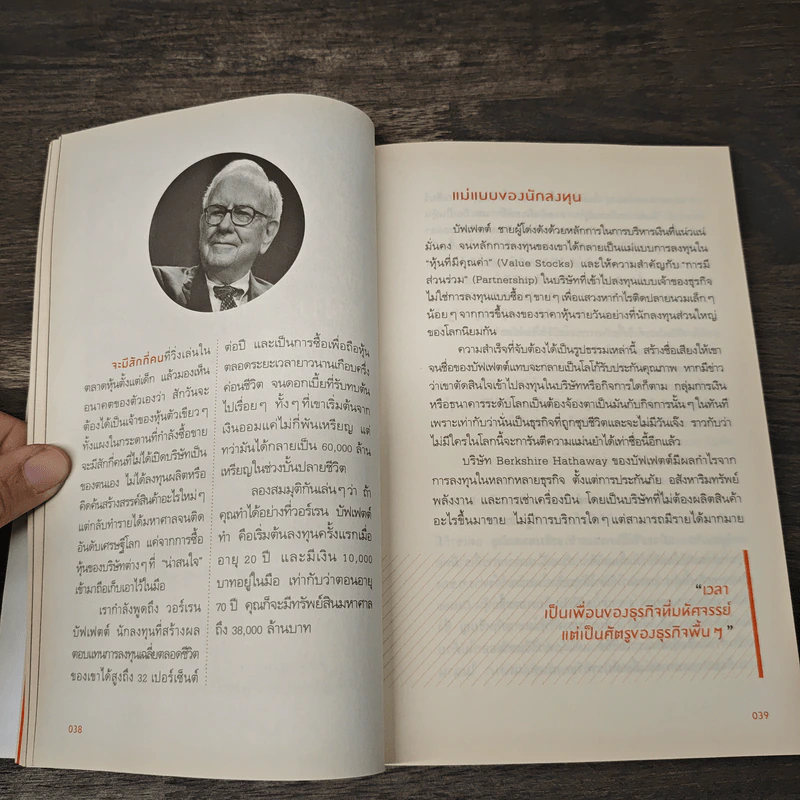 จะมีสักกี่คนที่วิ่งเล่นใน
ตลาดหุ้นตั้งแต่เด็ก แล้วมองเห็น
อนาคตของตัวเองว่า สักวันจะ
ต้องได้เป็นเจ้าของหุ้นตัวเขียว ๆ
ทั้งแผงในกระดานที่กำลังซื้อขาย
จะมีสักกี่คนที่ไม่ได้เปิดบริษัทเป็น
ของตนเอง ไม่ได้ลงทุนผลิตหรือ
คิดค้นสร้างสรรค์สินค้าอะไรใหม่ ๆ
แต่กลับทำรายได้มหาศาลจนติด
อันดับเศรษฐีโลก แค่จากการซื้อ
หุ้นของบริษัทต่าง ๆ ที่ "น่าสนใจ"
เข้ามาถือเก็บเอาไว้ในมือ
เรากำลังพูดถึง วอร์เรน
บัฟเฟตต์ นักลงทุนที่สร้างผล
ตอบแทนการลงทุนเฉลี่ยตลอดชีวิต
ของเขาได้สูงถึง 32 เปอร์เซ็นต์
ต่อปี และเป็นการซื้อเพื่อถือหุ้น
ตลอดระยะเวลายาวนานเกือบครึ่ง
ค่อนชีวิต จนดอกเบี้ยที่รับทบต้น
ไปเรื่อย ๆ ทั้ง ๆ ที่เขาเริ่มต้นจาก
เงินออมแค่ไม่กี่พันเหรียญ แต่
ทว่ามันได้กลายเป็น 60,000 ล้าน
เหรียญในช่วงบั้นปลายชีวิต
ลองสมมุติกันเล่น ๆ ว่า ถ้า
คุณทำได้อย่างที่วอร์เรน บัฟเฟตต์
ทำ คือเริ่มต้นลงทุนครั้งแรกเมื่อ
อายุ 20 ปี และมีเงิน 10,000
บาทอยู่ในมือ เท่ากับว่าตอนอายุ
70 ปี คุณก็จะมีทรัพย์สินมหาศาล
ถึง 38,000 ล้านบาท
038
แม่แบบของนักลงทุน
บัฟเฟตต์ ชายผู้โด่งดังด้วยหลักการในการบริหารเงินที่แน่วแน่
มั่นคง จนหลักการลงทุนของเขาได้กลายเป็นแม่แบบการลงทุนใน
"หุ้นที่มีคุณค่า" (Value Stocks) และให้ความสำคัญกับ "การมี
ส่วนร่วม" (Partnership) ในบริษัทที่เข้าไปลงทุนแบบเจ้าของธุรกิจ
ไม่ใช่การลงทุนแบบซื้อ ๆ ขาย ๆ เพื่อแสวงหากำไรติดปลายนวมเล็ก ๆ
น้อย ๆ จากการขึ้นลงของราคาหุ้นรายวันอย่างที่นักลงทุนส่วนใหญ่
ของโลกนิยมกัน
ความสำเร็จที่จับต้องได้เป็นรูปธรรมเหล่านี้ สร้างชื่อเสียงให้เขา
จนชื่อของบัฟเฟตต์แทบจะกลายเป็นโลโก้รับประกันคุณภาพ หากมีข่าว
ว่าเขาตัดสินใจเข้าไปลงทุนในบริษัทหรือกิจการใดก็ตาม กลุ่มการเงิน
หรือธนาคารระดับโลกเป็นต้องจ้องตาเป็นมันกับกิจการนั้น ๆ ในทันที
เพราะเท่ากับว่านั่นเป็นธุรกิจที่ถูกชุบชีวิตและจะไม่มีวันเจ๊ง ราวกับว่า
ไม่มีใครในโลกนี้จะการันตีความแม่นยำได้เท่าชื่อนี้อีกแล้ว
บริษัท Berkshire Hathaway ของบัฟเฟตต์มีผลกำไรจาก
การลงทุนในหลากหลายธุรกิจ ตั้งแต่การประกันภัย อสังหาริมทรัพย์
พลังงาน และการเช่าเครื่องบิน โดยเป็นบริษัทที่ไม่ต้องผลิตสินค้า
อะไรขึ้นมาขาย ไม่มีการบริการใด ๆ แต่สามารถมีรายได้มากมาย
"เวลา
เป็นเพื่อนของธุรกิจที่มหัศจรรย์
แต่เป็นศัตรูของธุรกิจพื้น ๆ"
039